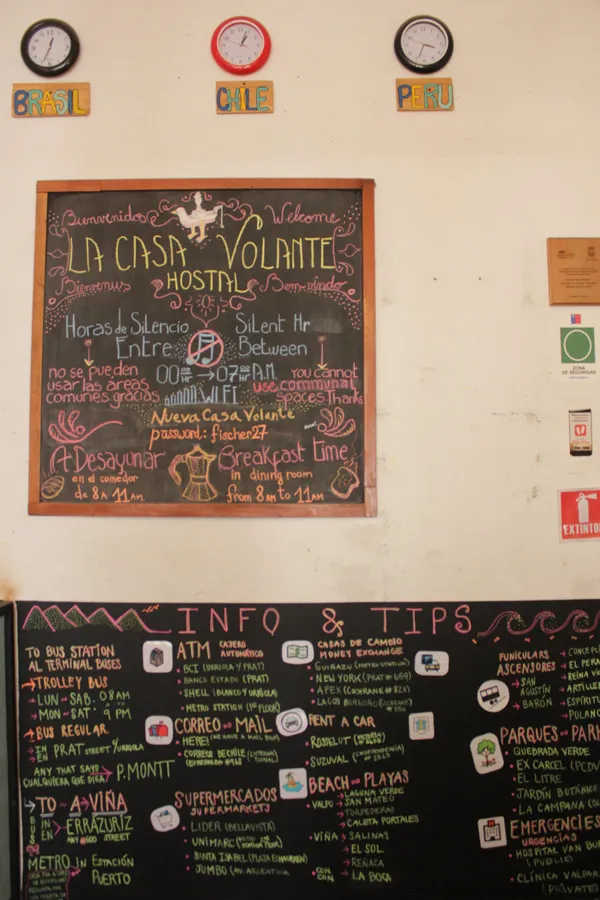 BRASIL
CHILE
PERU
Bienvenidos
Welcome
LA CASA VOLANTE
HOSTAL
Bienvenus
Bem-vindo
Horas de Silencio
Entre
Silent Hr
Between
00:00 HR → 07:00 HR A.M.
no se pueden
usar las áreas
comunes, gracias
You cannot
use communal
spaces. Thanks
WIFI
Nueva Casa Volante
password: fischer27
A Desayunar
en el comedor
de 8 A 11 AM
Breakfast time
in dining room
from 8 AM to 11 AM
ZONA
DE SEGURIDAD
EXTINTOR
INFO & TIPS
TO BUS STATION
AL TERMINAL BUSES
→ TROLLEY BUS
→ LUN - SAB. 08 AM
→ MON - SAT 9 PM
→ BUS REGULAR
IN EN PRAT STREET / URRIOLA
ANY THAT SAYS
CUALQUIERA QUE DIGA P. MONTT
→ TO → A → VIÑA
BUS IN EN ERRAZURIZ
STREET
METRO in EN ESTACIÓN
PUERTO
ATM CAJERO
AUTOMÁTICO
BCI (URRIOLA Y PRAT)
BANCO ESTADO (PRAT)
SHELL (BLANCO Y URRIOLA)
METRO STATION (1st FLOOR)
CORREO - MAIL
HERE! (WE HAVE A MAIL BOX)
CORREOS DE CHILE
SUPERMERCADOS
SUPERMARKETS
LIDER (BELLAVISTA)
UNIMARC
SANTA ISABEL (PLAZA ECHAURREN)
JUMBO (AV. ARGENTINA)
CASAS DE CAMBIO
MONEY EXCHANGE
GUINAZU (METRO STATION)
NEW YORK (PRAT # 659)
AFEX (COCHRANE # 828)
RENT A CAR
ROSSELOT
SUZUVAL
BEACH - PLAYAS
VALPO → LAGUNA VERDE
→ SAN MATEO
→ TORPEDERAS
→ CALETA PORTALES
VIÑA → SALINAS
EL SOL
→ REÑACA
CON CON → LA BOCA
FUNICULARS
ASCENSORES
→ SAN AGUSTÍN
→ BARÓN
PARQUES - PARK
QUEBRADA VERDE
EX CARCEL (PCDV
EL LITRE
JARDÍN BOTÁNICO
LA CAMPANA
EMERGENCIES
URGENCIAS
HOSPITAL VAN BU
(PUBLIC)
CLÍNICA VALPAR
(PRIVATE)